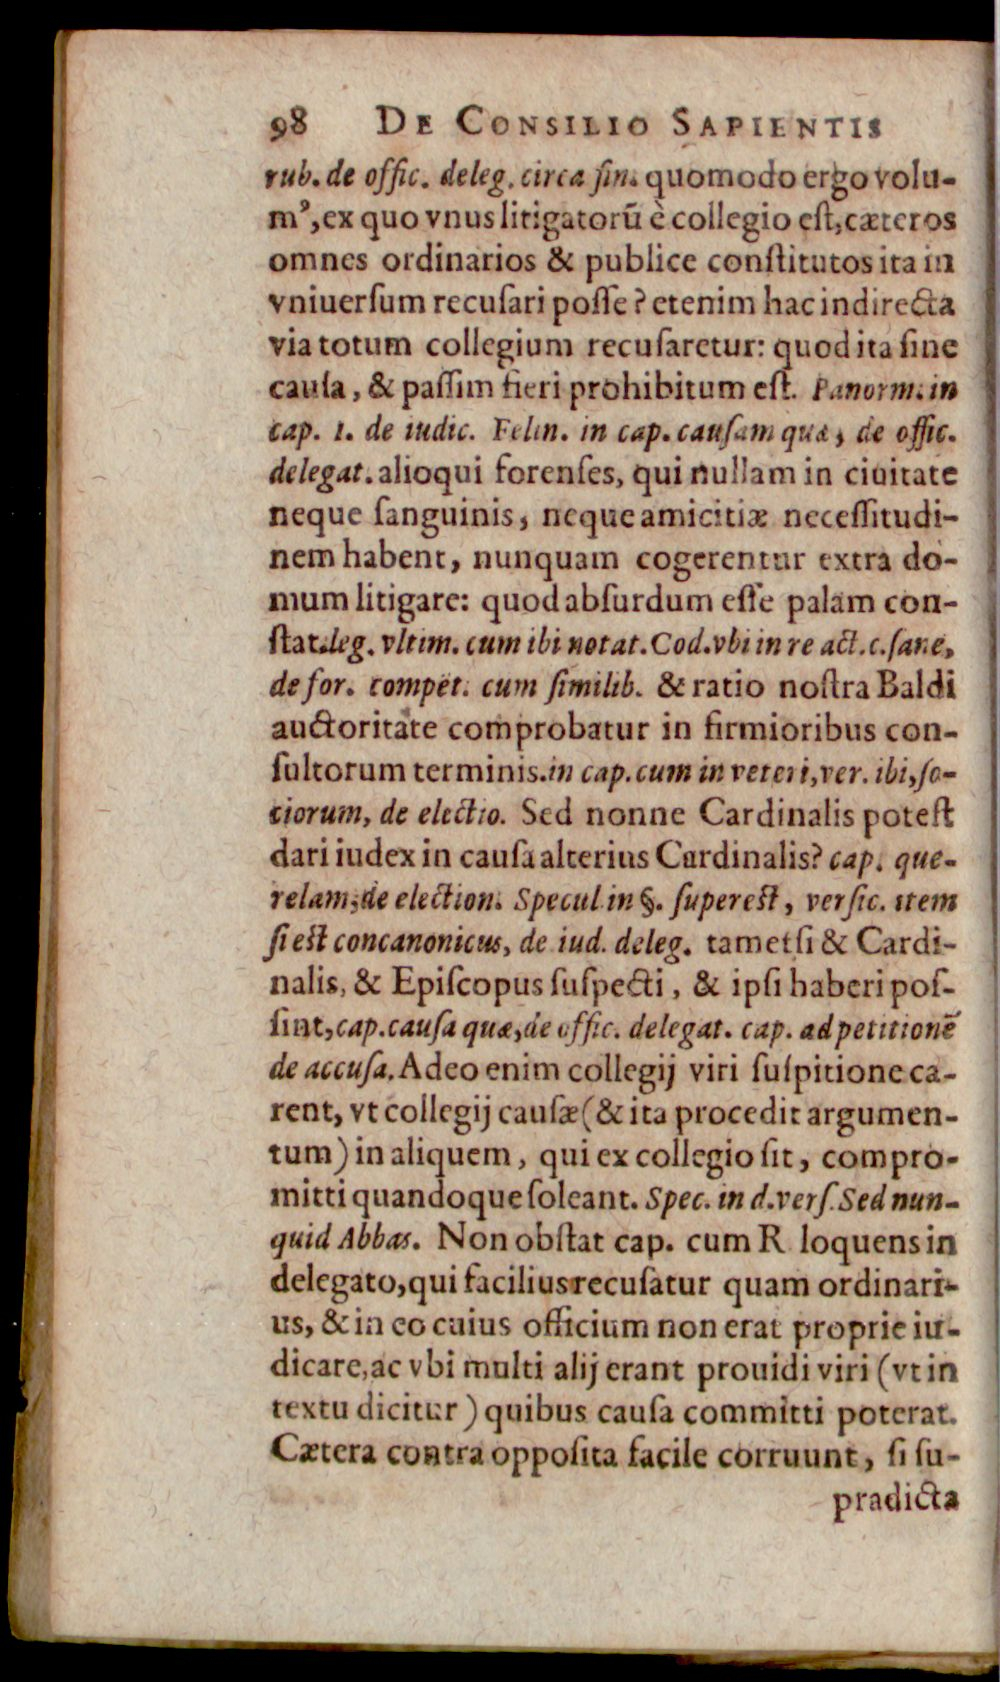 98 DE CONSILIO SAPIENTIS
rub. de offic. deleg. circa fin. quomodo ergo volu-
m⁹, ex quo vnus litigatorũ è collegio eſt, cæteros
omnes ordinarios & publice conſtitutos ita in
vniuerſum recuſari poſſe? etenim hac indirecta
via totum collegium recuſaretur: quod ita ſine
cauſa, & paſſim fieri prohibitum eſt. Panorm. in
cap. 1. de iudic. Felin. in cap. cauſam quæ, de offic.
delegat. alioqui forenſes, qui nullam in ciuitate
neque ſanguinis, neque amicitiæ neceſſitudi-
nem habent, nunquam cogerentur extra do-
mum litigare: quod abſurdum eſſe palam con-
ſtat. leg. vltim. cum ibi notat. Cod. vbi in re act. c. ſane,
de for. compet. cum ſimilib. & ratio noſtra Baldi
auctoritate comprobatur in firmioribus con-
ſultorum terminis. in cap. cum in veteri, ver. ibi, ſo-
ciorum, de electio. Sed nonne Cardinalis poteſt
dari iudex in cauſa alterius Cardinalis? cap. que-
relam, de election. Specul. in §. ſupereſt, verſic. item
ſi eſt concanonicus, de iud. deleg. tametſi & Cardi-
nalis, & Epiſcopus ſuſpecti, & ipſi haberi poſ-
ſint, cap. cauſa quæ, de offic. delegat. cap. ad petitionẽ
de accuſa. Adeo enim collegij viri ſuſpitione ca-
rent, vt collegij cauſæ (& ita procedit argumen-
tum) in aliquem, qui ex collegio ſit, compro-
mitti quandoque ſoleant. Spec. in d. verſ. Sed nun-
quid Abbas. Non obſtat cap. cum R. loquens in
delegato, qui facilius recuſatur quam ordinari-
us, & in eo cuius officium non erat proprie iu-
dicare, ac vbi multi alij erant prouidi viri (vt in
textu dicitur) quibus cauſa committi poterat.
Cætera contra oppoſita facile corruunt, ſi ſu-
pradicta